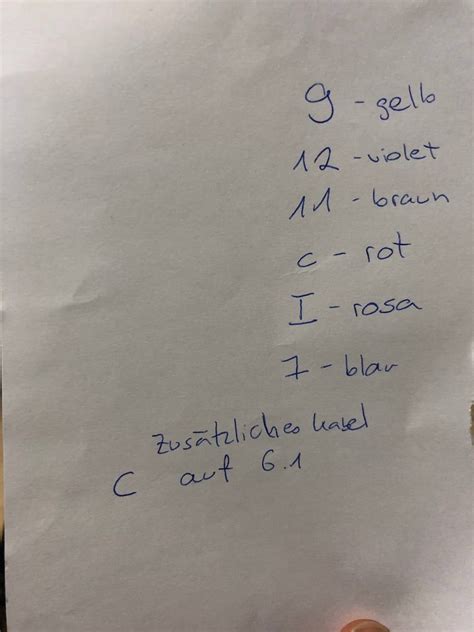 9 - gelb
12 - violet
11 - braun
c - rot
I - rosa
7 - blau
zusätzliches kabel
C auf 6.1